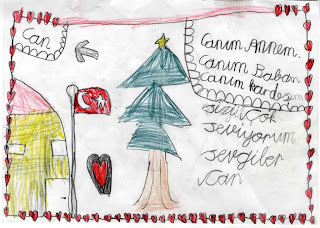 Can
Canım Annem.
Canım Babam
Canım kardeşim
sizi çok
seviyorum
sevgiler
Can